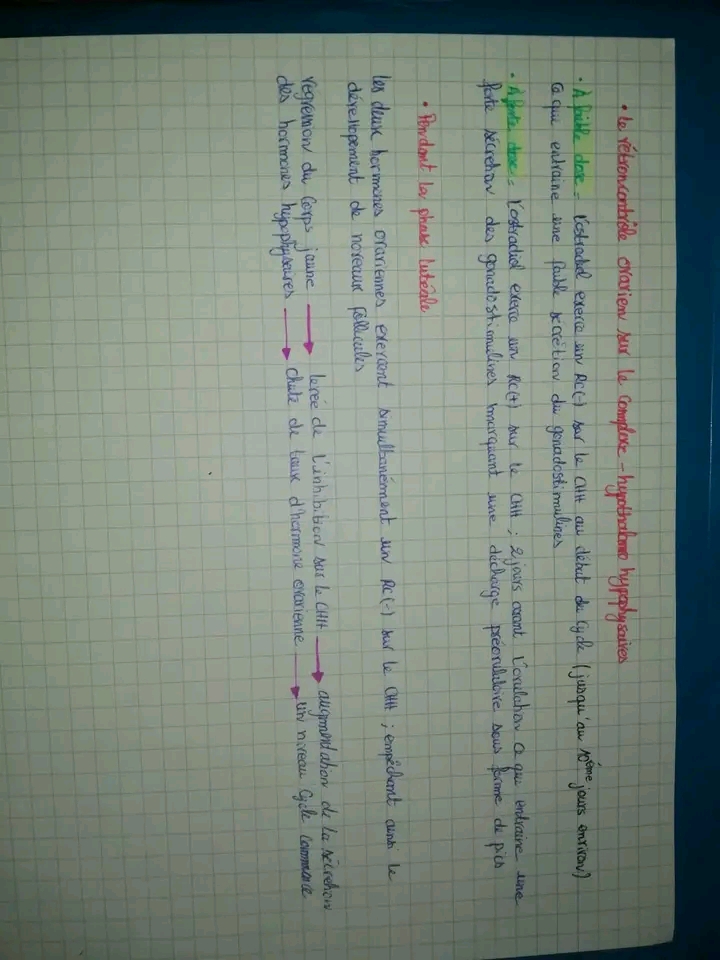 • Le rétroncontrôle ovarien sur le complexe-hypothalamo hypophysaires
• À faible dose = l'ostradiol exerce un RC(-) sur le CHH au début du cycle (jusqu'au 10ème jours environ)
ce qui entraine une faible sécrétion du gonadostimulines
• À forte dose = l'ostradiol exerce un RC(+) sur le CHH ; 2 jours avant l'ovulation ce qui entraine une
forte sécretion des gonadostimulines marquant une décharge préovulatoire sous forme de pics
• Pendant la phase lutéale
les deux hormones ovariennes exercent simultanément un RC(-) sur le CHH ; empêchant ainsi le
développement de noveaux follicules
regression du Corps jaune → levée de l'inhibition sur le CHH → augmentation de la sécretion
des hormones hypophysaires → chute de taux d'hormone ovarienne → un niveau cycle commence